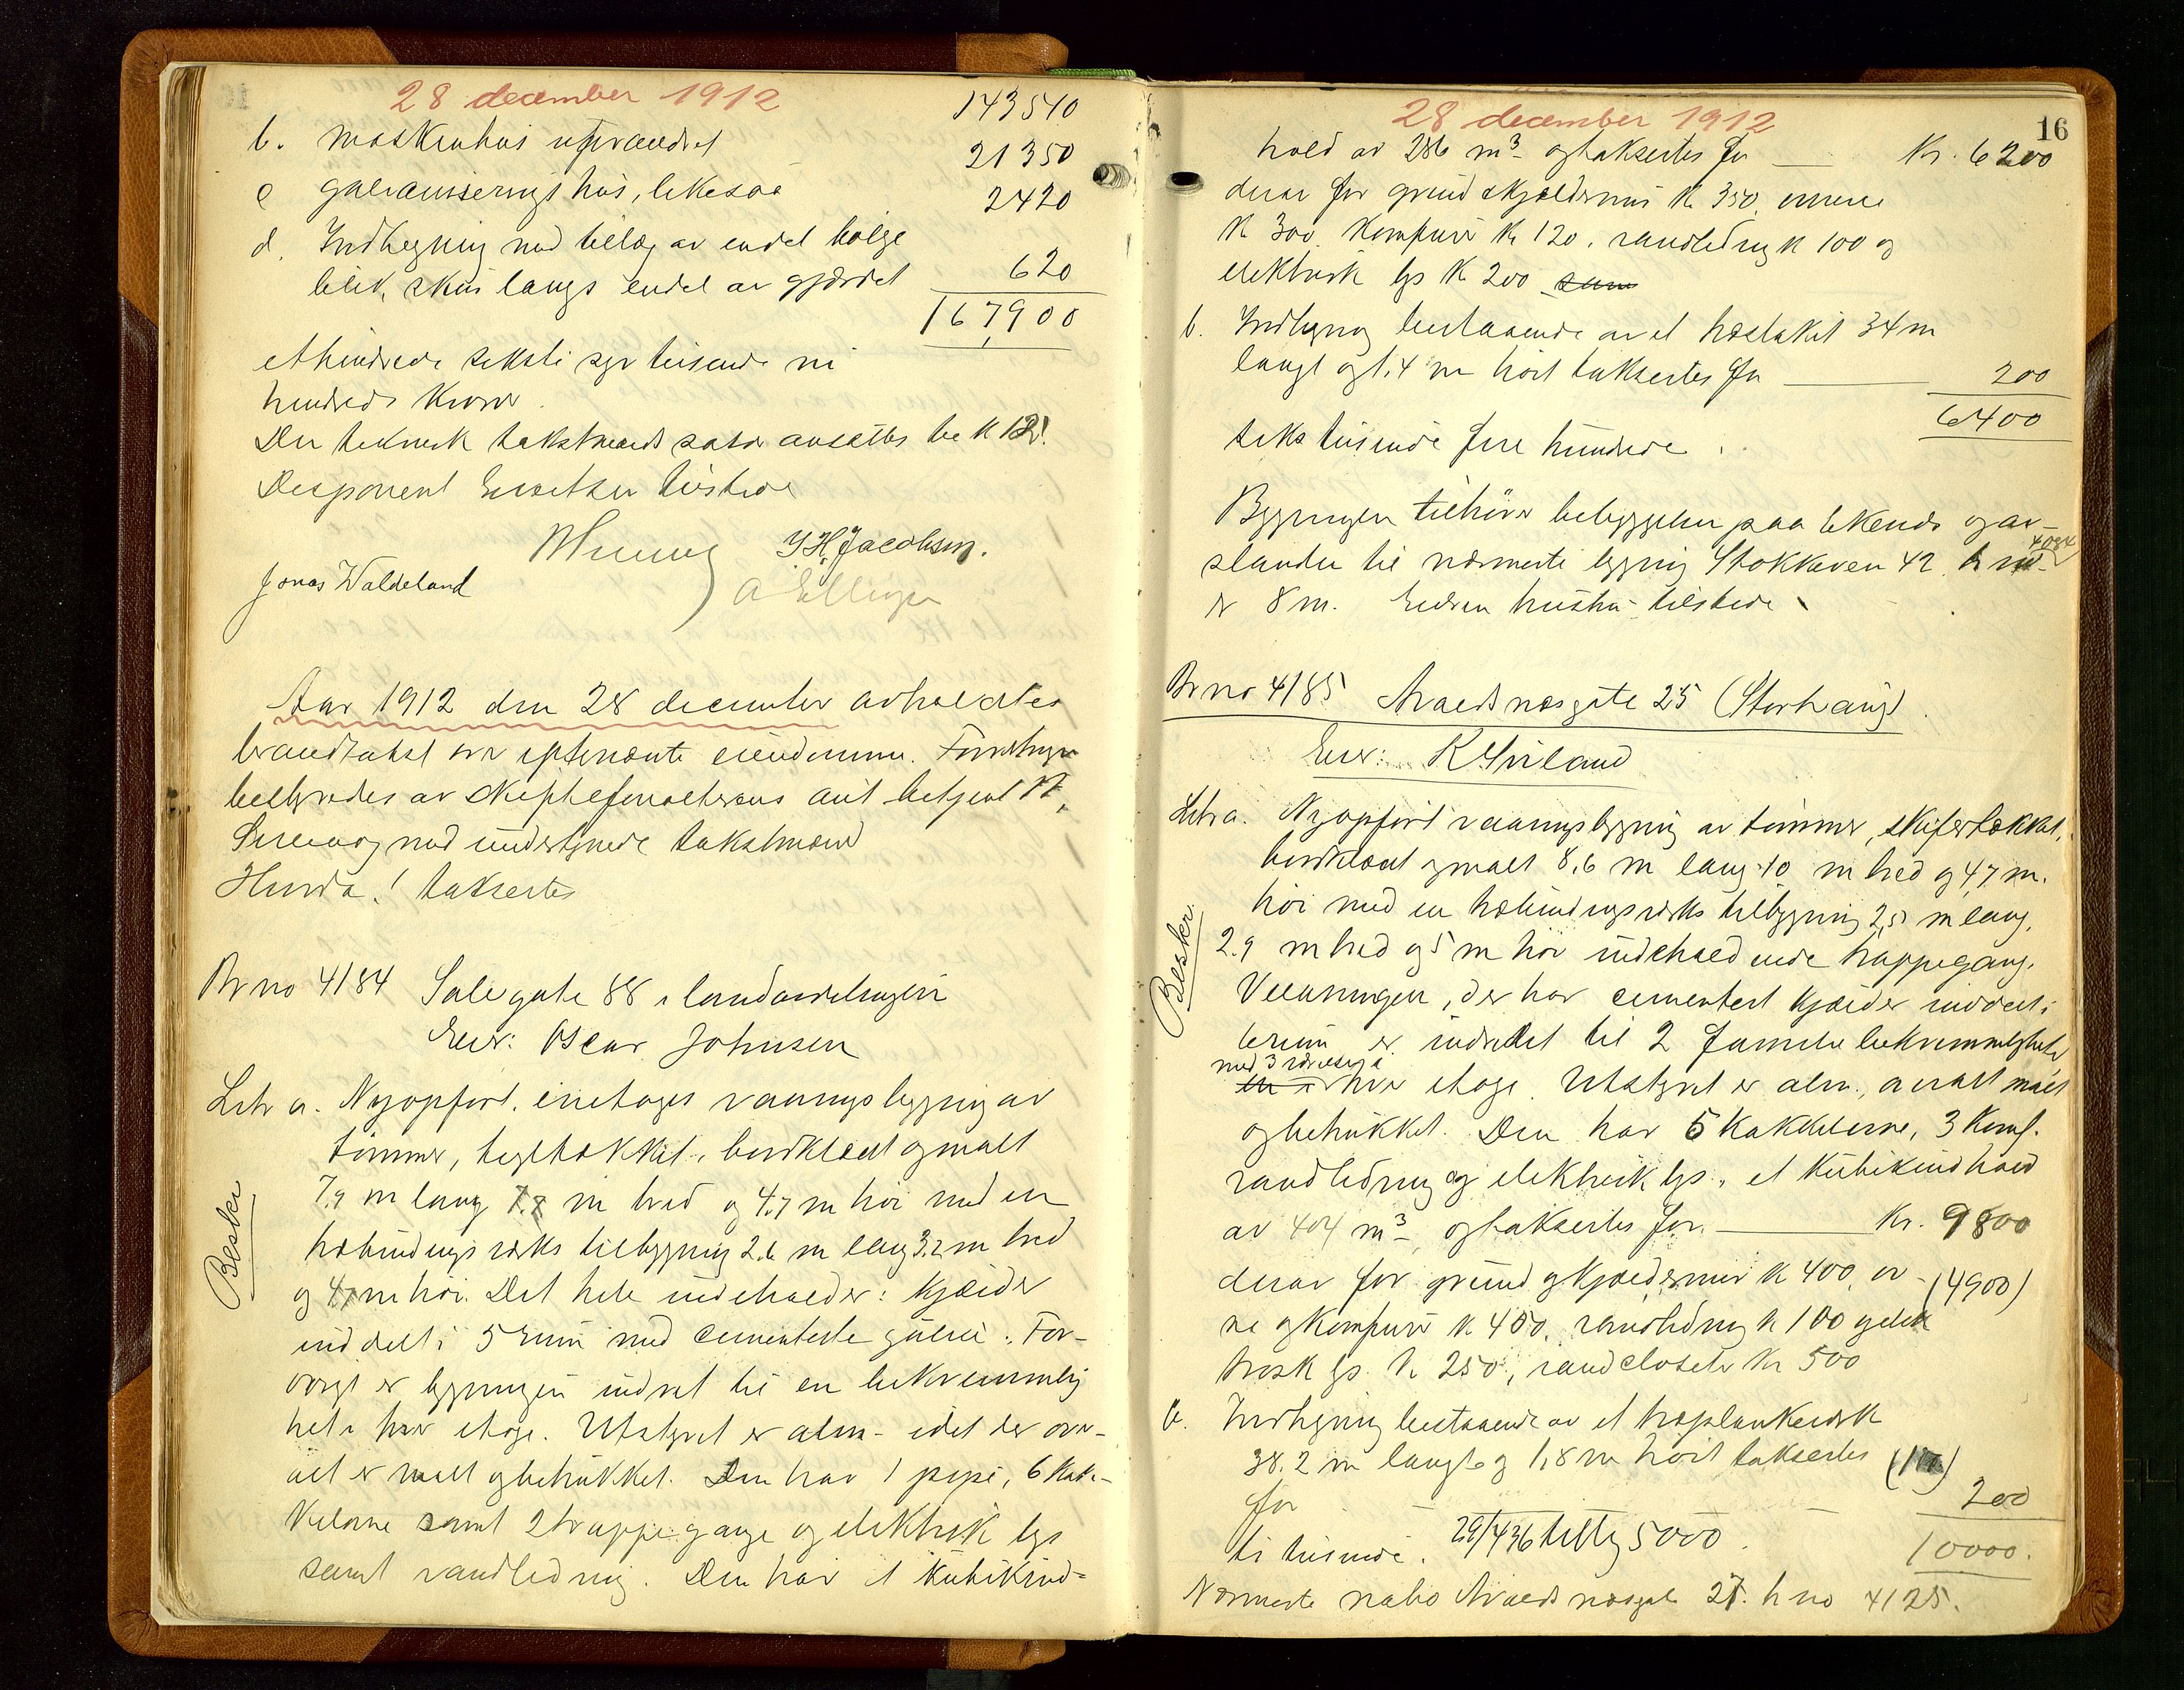 28 december 1912
143540
b. maskinhus uforandret 21350
c galvaniseringshus, likesaa 2420
d. Indhegning med tillæg av endel bølge
blik skur langs endel av gjærdet 620
167900
ethundrede seksti syv tusende ni
hundrede Kroner.
Den teknisk takstmands salær ansættes til K 12!
Disponent tilstede
J H Jacobsen.
Jonas Waldeland
A Ellingsen
Aar 1912 den 28 december avholdtes
brandtakst over eftenævnte eiendomme. Forretningen
bestyredes av skifteforvalterens aut betjent
med undertegnede takstmænd
Hvorda! takseertes
Br no 4184 Sølvegate 88 i landavdelingen
Eier: Oscar Johnsen
Litr a. Nyopført. enetages vaaningsbygning av
tømmer, tegltækket, bordklædt og malt
7.9 m lang 7.7 m bred og 4.7 m høi med en
halvbindingsværks tilbygning 2.6 m lang 3.2 m bred
og 4.7 m høi. Det hele indeholder: kjælder
inddelt i 5 rum med cementerte gulve. For-
øvrigt er bygningen indret til en bekvemmelig
het i hver etage. Utstyret er alm- idet der over-
alt er malt og betrukket. Den har 1 pipe, 6 kak-
kelovne samt 2 trappegange og elektrisk lys
samt vandledning. Den har et kubikind-
Besker
28 december 1912
16
hold av 286 m³ og takseertes for — Kr. 6200
derav for grund & kjældermur K 350. ovnene
K 300. Komfurer K 120. vandledning K 100 og
elektrisk lys K 200 sum
b. Indhegning bestaaende av et træstakit 34 m
langt og 1.4 m høit takseertes for — 200
6400
seks tusende fire hundrede.
Bygningen tilhører bebyggelsen paa Ekenes og av-
standen til nærmeste bygning Stokkaveien 42 br no 4084
er 8 m. Eieren hustru tilstede
Br no 4185 Avaldsnesgate 25 (Storhaug)
Eier: K Hviland
Litr a. Nyopført vaaningsbygning av tømmer, skifertækket,
bordklædt og malt 8.6 m lang 10 m bred og 4.7 m.
høi med en halvbindingsværks tilbygning 2.5 m lang,
2.9 m bred og 5 m høi indeholdende trappegang.
Vaaningen, der har cementert kjælder inddelt i
6 rum er indredet til 2 familiebekvemmeligheter
med 3 værelser i
en i hver etage. Utstyret er alm., overalt malt
og betrukket. Den har 5 kakkelovne, 3 komf.
vandledning og elektrisk lys, et kubikindhold
av 404 m³ og takseertes for — Kr. 9800
derav for grund og kjældermur K 400. ov- (4900)
ne og komfurer K 400. vandledning K 100 og elek
trisk lys K 250, vandcloseter Kr 500
b. Indhegning bestaaende av et træplankeværk
38.2 m langt og 1,8 m høit takseertes (100)
for 200
ti tusende. 29/4 36 tillæg 5000. 10000.
Nærmeste nabo Avaldsnesgate 27. br no 4125.
Besker.